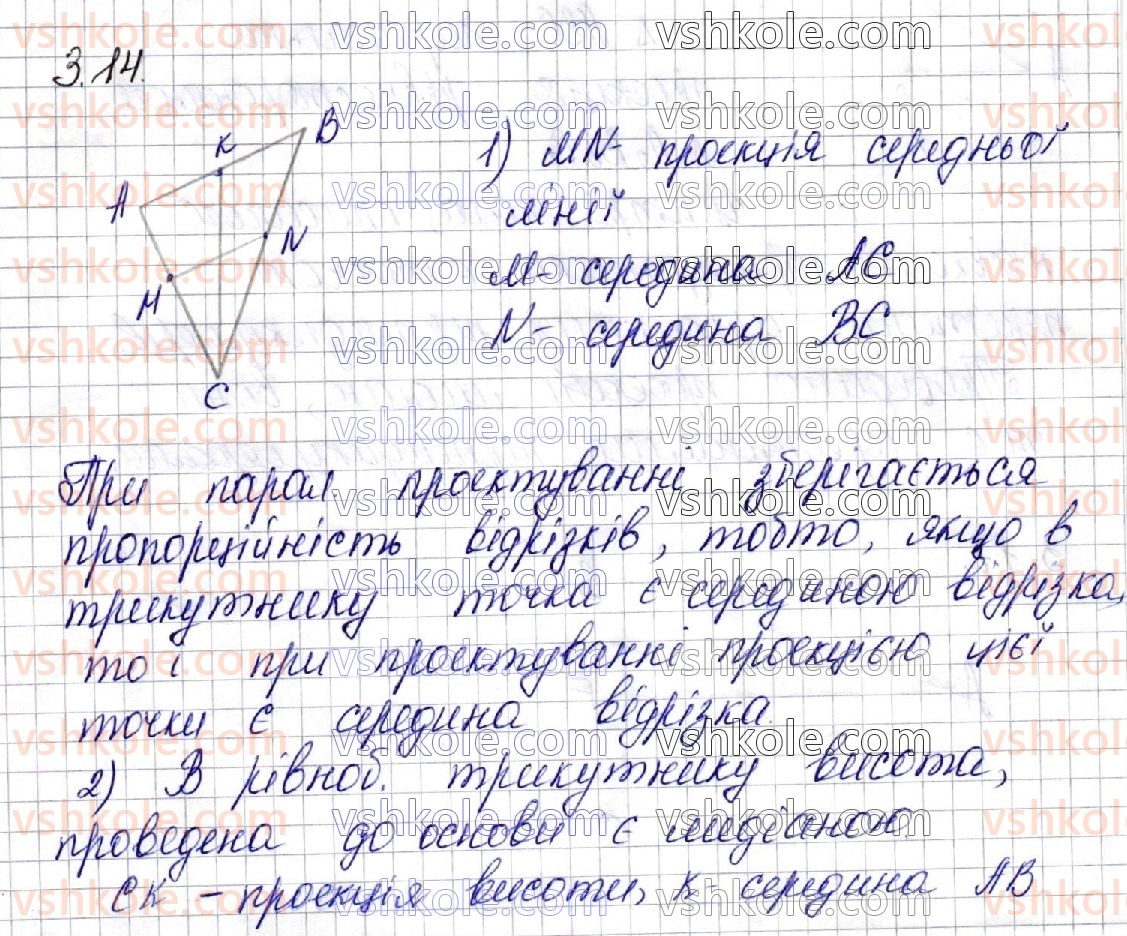 3.14.
B
K
A
N
M
C
1) MN- проєкція середньої
лінії
M- середина AC
N- середина BC
При парал проєктуванні зберігається
пропорційність відрізків, тобто, якщо в
трикутнику точка є серединою відрізка,
то і при проєктуванні проєкцією цієї
точки є середина відрізка
2) В рівноб. трикутнику висота,
проведена до основи є медіаною
CK - проєкція висоти, K- середина AB
vshkole.com